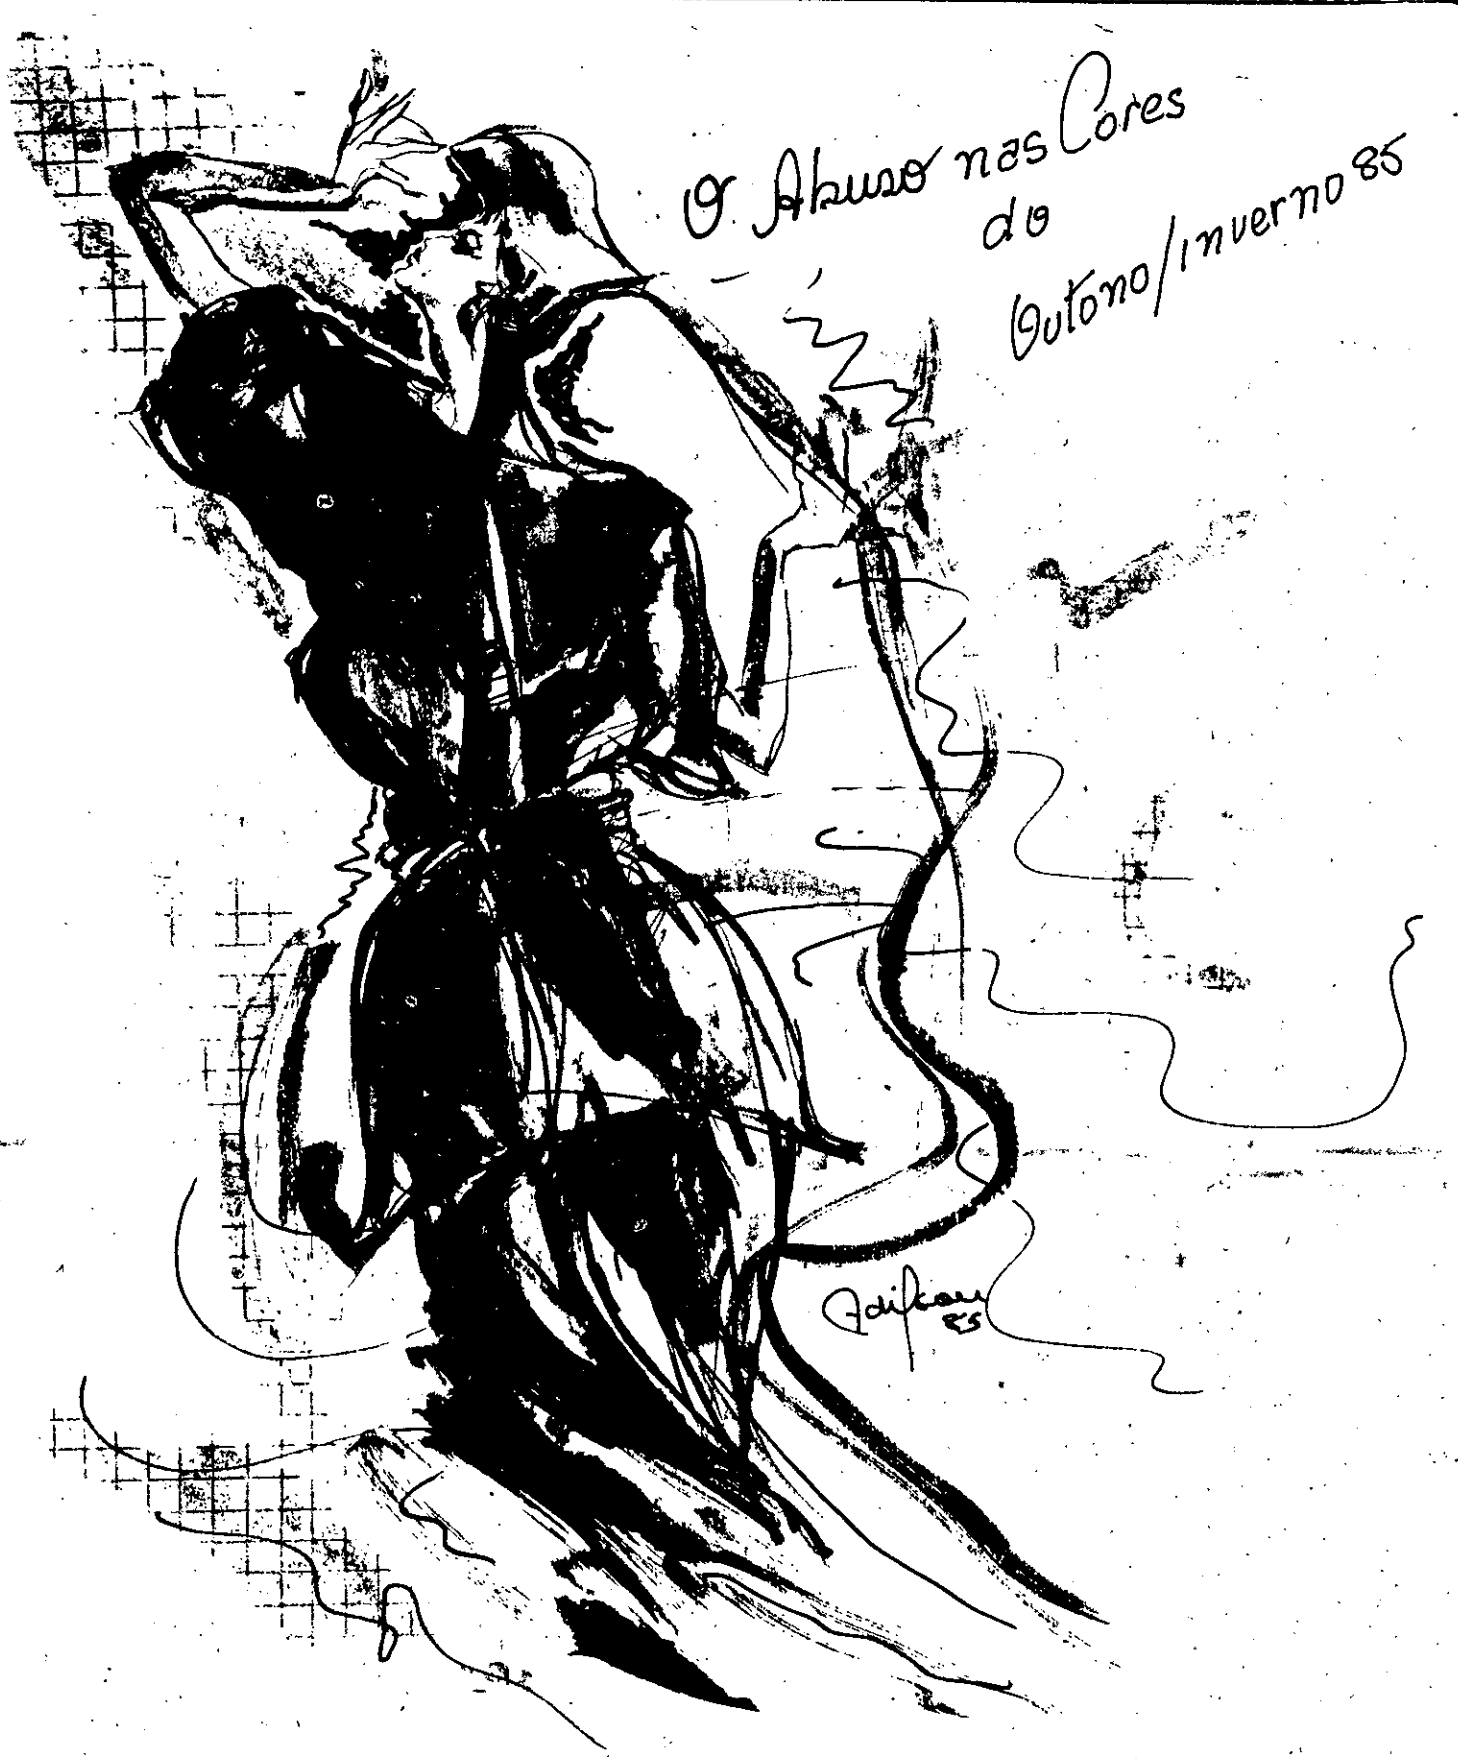 O Abuso nas Cores
do
Outono/Inverno 85
85